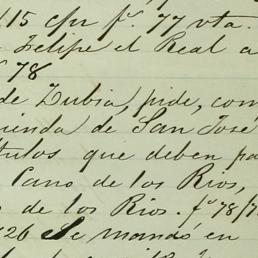 115 cpr fº. 77 vta.
Felipe el Real a
º 78
de Zubia, pide, com
ienda de San José
tulos que deben pa
Cano de los Rios,
s de los Rios. fº 78/7
26 Se mandó en